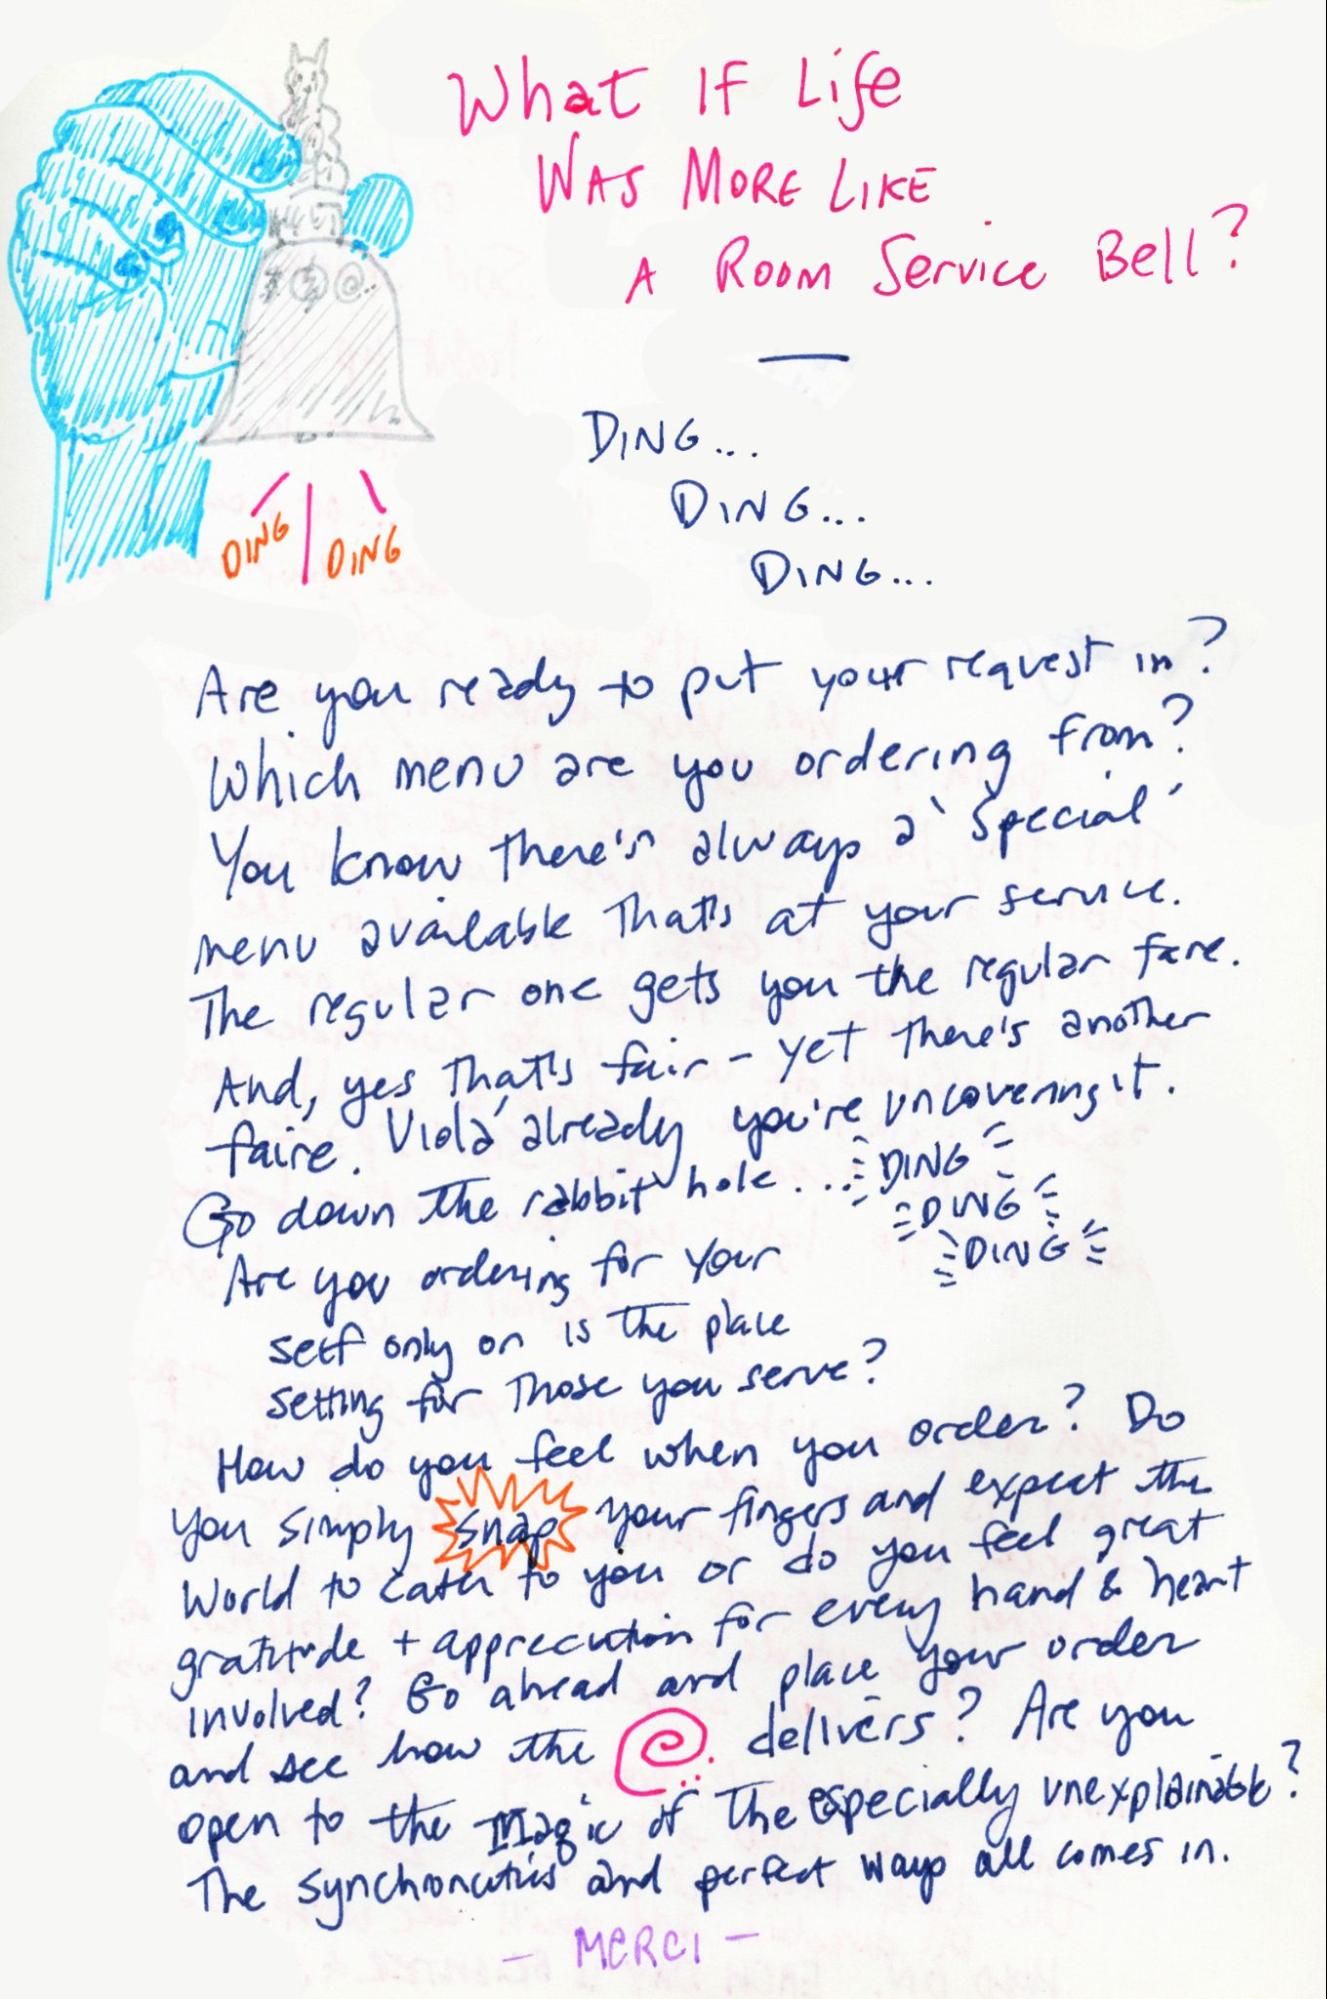 What If Life
Was More Like
A Room Service Bell?
Ding...
Ding...
Ding...
Ding Ding
Are you ready to put your request in?
Which menu are you ordering from?
You know there's always a 'special'
menu available that's at your service.
The regular one gets you the regular fare.
And, yes that's fair - yet there's another
faire. Violá already you're uncovering it.
Go down the rabbit hole... Ding
Ding
Ding
Are you ordering for your
self only or is the place
setting for those you serve?
How do you feel when you order? Do
you simply snap your fingers and expect the
world to cater to you or do you feel great
gratitude + appreciation for every hand & heart
involved? Go ahead and place your order
and see how the delivers? Are you
open to the magic of the especially unexplainable?
The synchronicities and perfect ways all comes in.
- Merci -